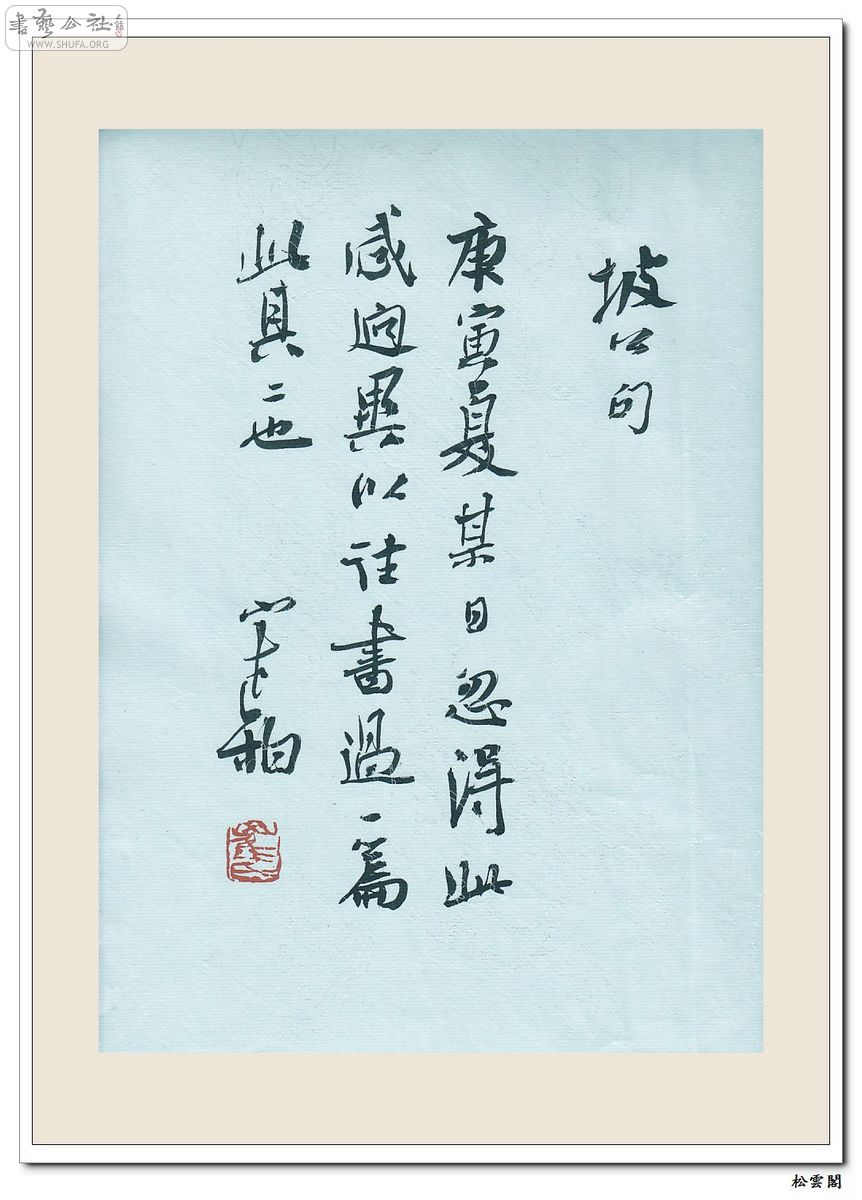 書藝公社
WWW.SHUFA.ORG
坡公句
庚寅夏某日忽得此
感迥異以往書過一篇
此其二也
柏
松雲閣